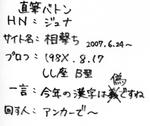 直筆バトン
HN：ジュナ
サイト名：相撃ち 2007.6.24～
プロフ：198X.8.17
しし座 B型
一言：今年の漢字は偽ですね
回す人：アンカーで～